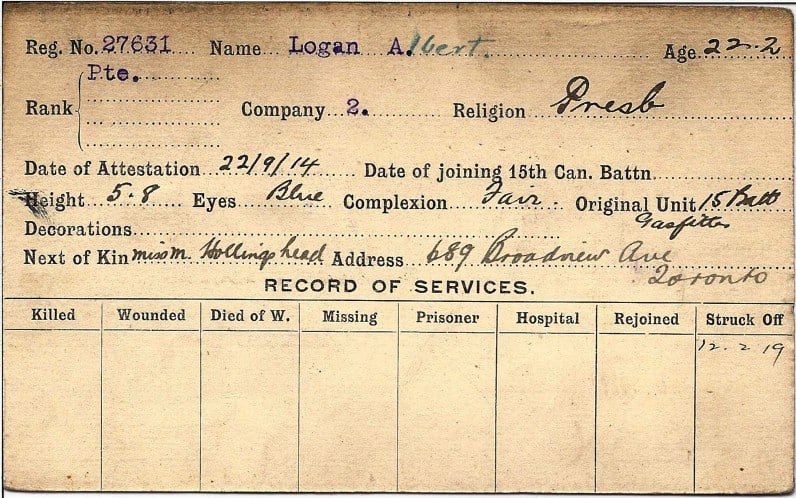 Reg. No. 27631 Name Logan Albert. Age 22.2
Pte.
Rank Company 2. Religion Presb
Date of Attestation 22/9/14 Date of joining 15th Can. Battn.
Height 5.8 Eyes Blue Complexion Fair. Original Unit 15 Batt
Decorations Gasfitter
Next of Kin miss M. Hollingshead Address 689 Broadview Ave
Toronto
RECORD OF SERVICES.
Killed Wounded Died of W. Missing Prisoner Hospital Rejoined Struck Off
12.2.19